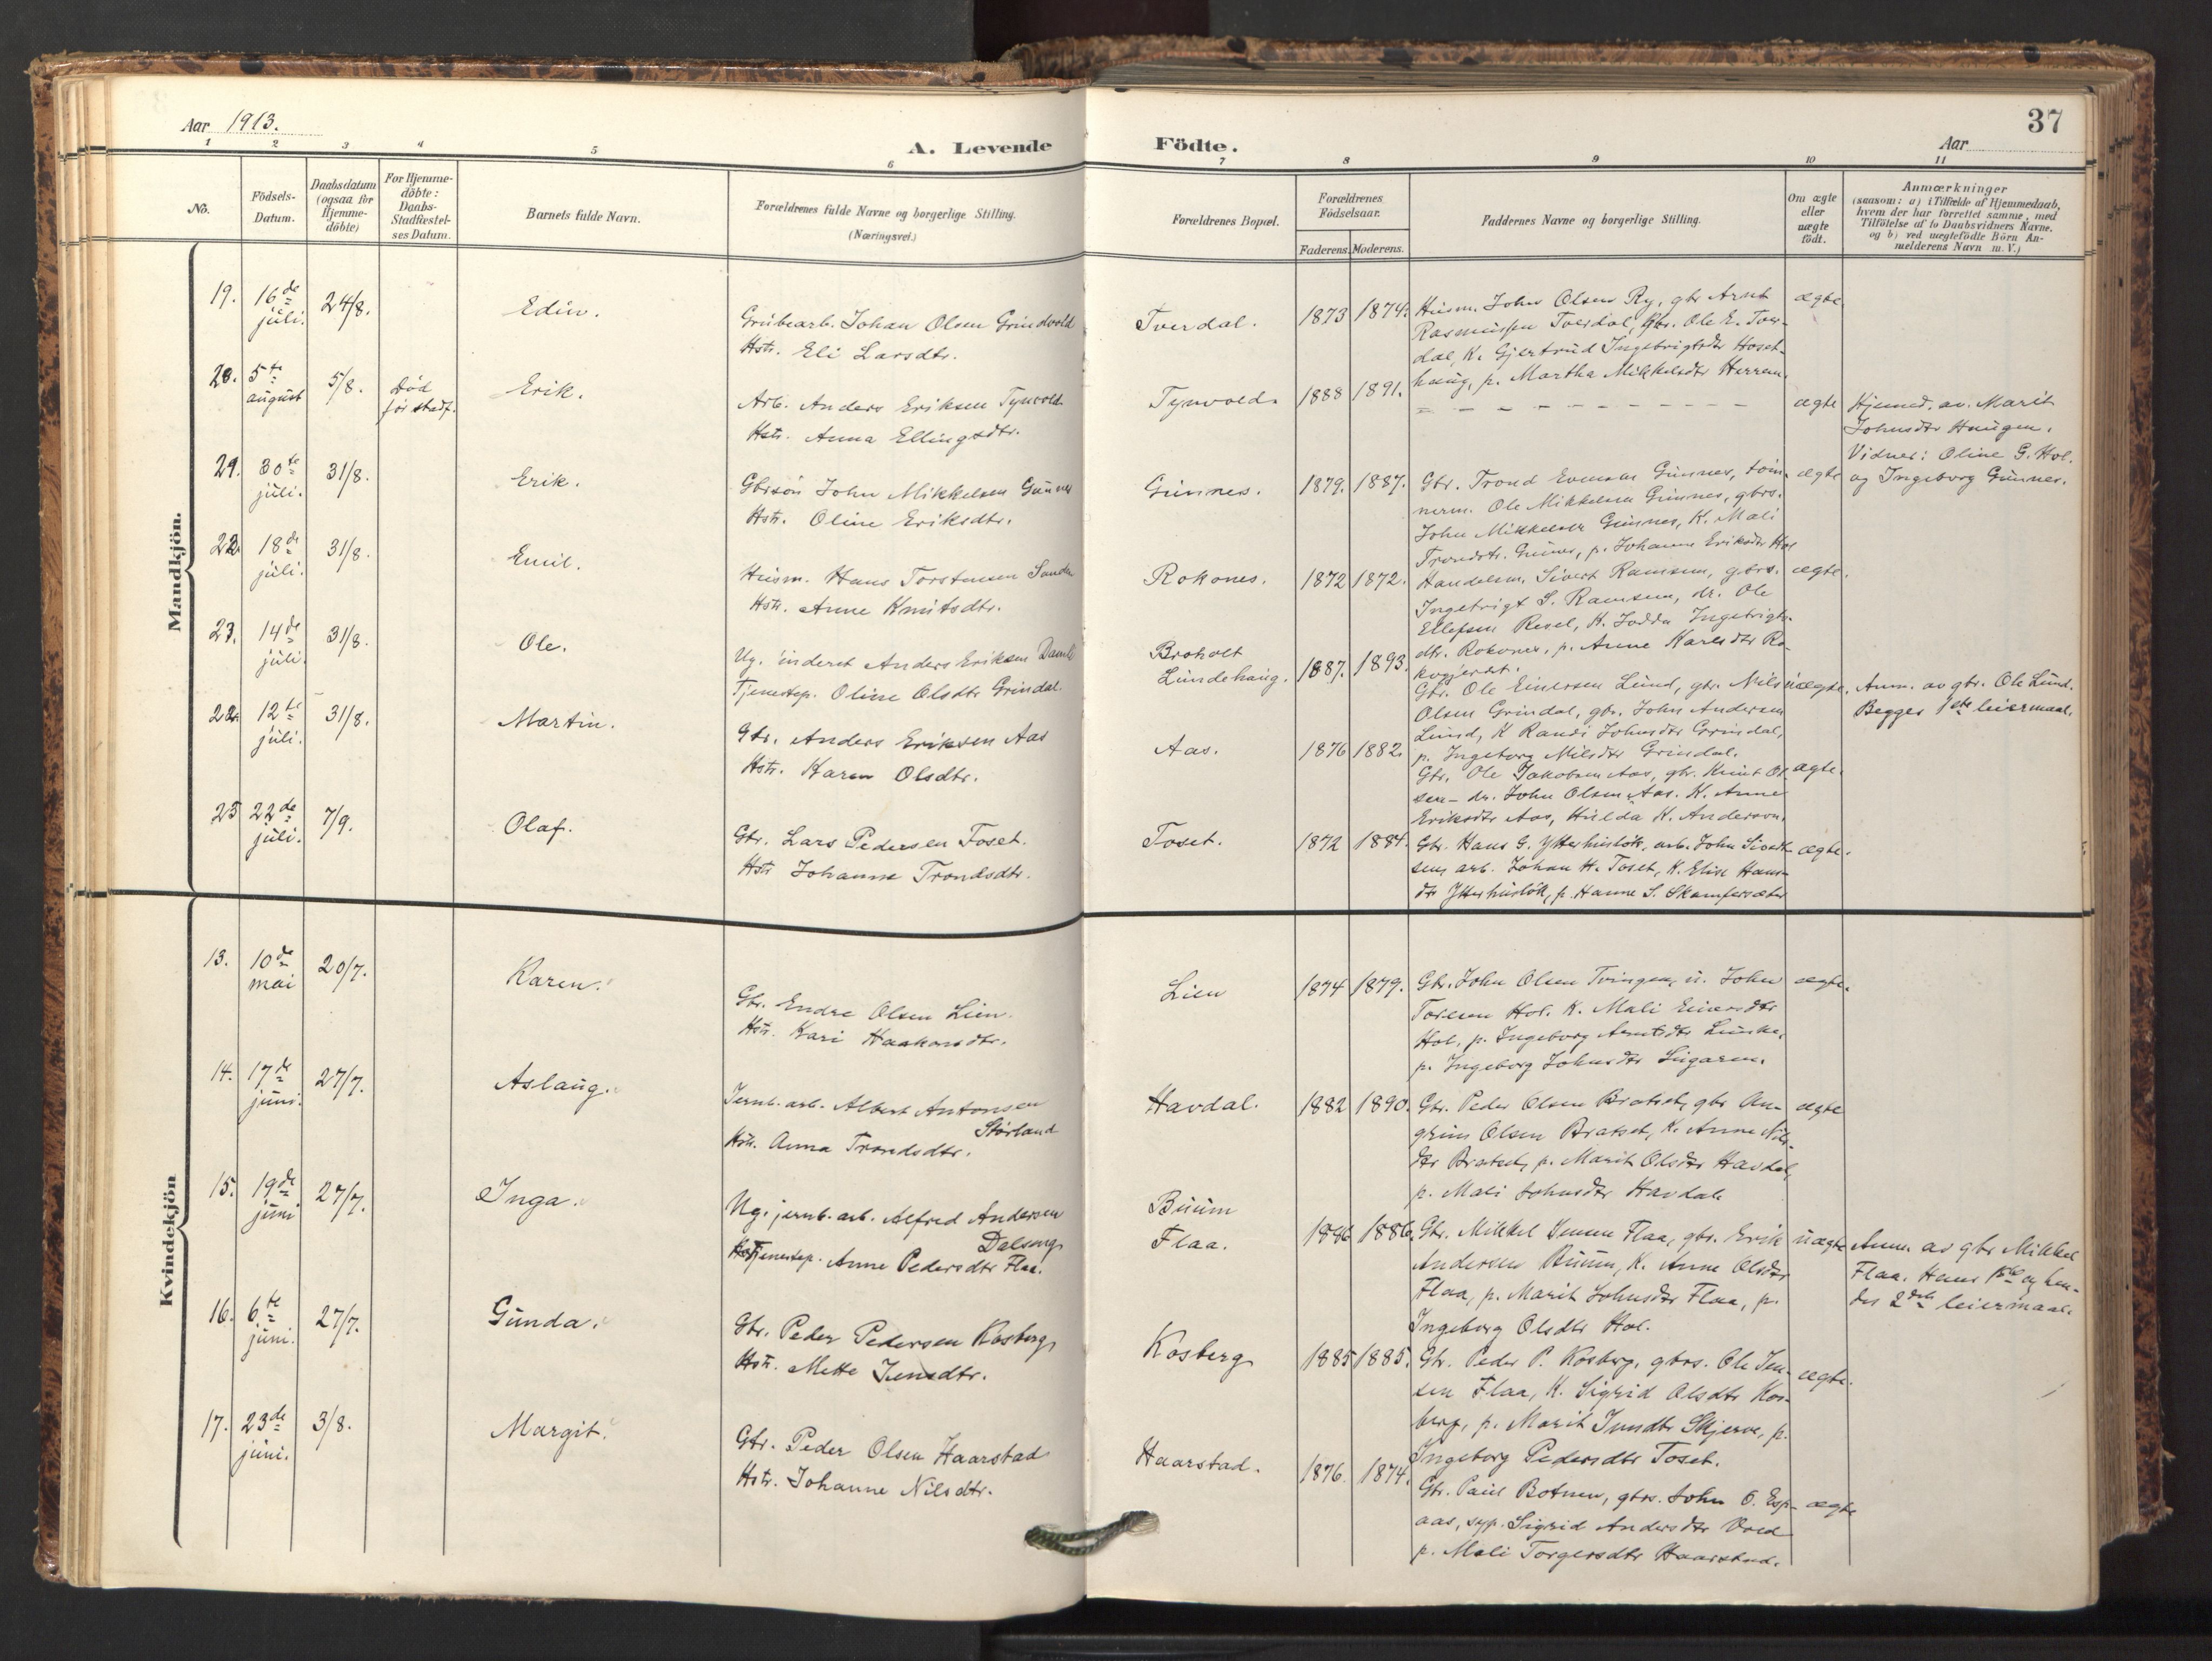 Aar 1913.
A. Levende Födte.
Aar
37
1 2 3 4 5 6 7 8 9 10 11
No.
Födsels-
Datum.
Daabsdatum
(ogsaa for
Hjemme-
döbte)
For Hjemme-
döbte:
Daabs-
Stadfæstel-
ses Datum.
Barnets fulde Navn.
Forældrenes fulde Navne og borgerlige Stilling.
(Næringsvei.)
Forældrenes Bopæl.
Forældrenes
Födselsaar.
Faderens. Moderens.
Faddernes Navne og borgerlige Stilling.
Om ægte
eller
uægte
födt.
Anmærkninger
(saasom: a) i Tilfælde af Hjemmedaab,
hvem der har forrettet samme, med
Tilföielse af to Daabsvidners Navne.
og b) ved uægtefödte Börn An-
melderens Navn m. V.)
Mandkjön.
19. 16de juli. 24/8. Edin.
Grubearb. Johan Olsen Grindvold
Hstr. Eli Larsdtr.
Tverdal. 1873 1874.
Husm. John Olsen Ry, gbr Arnt
Rasmussen Tverdal, gbr. Ole E. Tver-
dal, K. Gjertrud Ingebrigtsdtr Hoset-
haug, p. Martha Mikkelsdtr Herrem.
ægte
20. 5te august 5/8. Død
før stadf.
Erik.
Arb. Anders Eriksen Tynvold
Hstr. Anna Ellingsdtr.
Tynvold. 1888 1891.
= - - - - - - - - - - -
ægte
Hjemmed. av Marit
Johnsdtr Haugen.
Vidner: Oline G. Hol.
og Ingeborg Gunnes.
21. 30te juli. 31/8. Erik.
Gbrsøn John Mikkelsen Gunnes
Hstr. Oline Eriksdtr.
Gunnes. 1879. 1887.
Gbr. Trond Evensen Gunnes, tøm-
merm. Ole Mikkelsen Gunnes, gbrs.
John Mikkelsen Gunnes, K. Mali
Trondsdtr. Gunnes, p. Johanne Eriksdtr Hol
ægte
22. 18de juli. 31/8. Emil.
Husm. Hans Torstensen Sanden
Hstr. Anne Knutsdtr.
Rokones. 1872 1872.
Handelsm. Sivert Ramsem, gbrs.
Ingebrigt S. Ramsem, dr. Ole
Ellefsen Resel, K. Jodda Ingebrigts-
dtr. Rokones, p. Anne Karlsdtr Ro-
kogjerdet.
ægte.
23. 14de juli. 31/8. Ole.
Ug. inderst Anders Eriksen Damli
Tjenestep. Oline Olsdtr Grindal.
Broholt
Lundehaug. 1887. 1893.
Gbr. Ole Einersen Lund, gbr. Nils
Olsen Grindal, gbr. John Andersen
Lund, K Randi Johnsdtr Grindal,
p. Ingeborg Nilsdtr Grindal.
uægte.
Anm. av gbr. Ole Lund.
Begges 1ste leiermaal.
24. 12te juli. 31/8. Martin.
Gbr. Anders Eriksen Aas
Hstr. Karen Olsdtr.
Aas. 1876 1882.
Gbr. Ole Jakobsen Aas, gbr. Knut Ol-
sen - dr. John Olsen Aas. K. Anne
Eriksdtr Aas, Hulda K. Anderson.
ægte.
25 22de juli. 7/9. Olaf.
Gbr. Lars Pedersen Toset.
Hstr Johanna Trondsdtr.
Toset. 1872 1884.
Gbr. Hans G. Ytterhusløk, arb. John Sivert-
sen, arb. Johan H. Toset, K. Elise Hans-
dtr Ytterhusløk, p. Hanne S. Skamfersæter
ægte.
Kvindekjön
13. 10de mai 20/7. Karen.
Gbr. Endre Olsen Lien.
Hstr. Kari Haakonsdtr.
Lien 1874 1879.
Gbr. John Olsen Tvingen, u. John
Toresen Hol. K. Mali Einersdtr
Hol, p. Ingeborg Arntsdtr
p. Ingeborg Johnsdtr
ægte.
14. 17de juni. 27/7. Aslaug.
Jernb. arb. Albert Antonsen
Størland
Hstr. Anna Trondsdtr.
Havdal. 1882 1890.
Gbr. Peder Olsen Bratset, gbr An-
grim Olsen Bratset, K. Anne Nils-
dtr Bratset, p. Marit Olsdtr Havdal,
p. Mali Johnsdtr Havdal.
ægte
15. 19de juni 27/7. Inga.
Ug. jernb. arb. Alfred Andersen
Dalseng
Tjenestep. Anne Pedersdtr Flaa.
Buum
Flaa. 1886 1886.
Gbr. Mikkel Jensen Flaa, gbr. Erik
Andersen Buum, K. Anne Olsdtr
Flaa, p. Marit Johnsdtr Flaa, p.
Ingeborg Olsdtr Hol.
uægte
Anm. av gbr Mikkel
Flaa. Hans 1ste og hen-
des 2det leiermaal.
16. 6te juni. 27/7. Gunda.
Gbr. Peder Pedersen Kosberg
Hstr. Mette Jensdtr.
Kosberg 1885 1885.
Gbr. Peder P. Kosberg, gbrs. Ole Jen-
sen Flaa, K. Sigrid Olsdtr Kos-
berg, p. Marit Jensdtr Skjerve, p.
Ingeborg Pedersdtr Toset.
ægte.
17. 23de juni. 3/8. Margit.
Gbr. Peder Olsen Haarstad
Hstr. Johanne Nilsdtr.
Haarstad. 1876. 1874.
Gbr. Paul Botnen, gbrs. John O. Esp-
aas, syp. Sigrid Andersdtr
p. Mali Torgersdtr Haarstad.
ægte